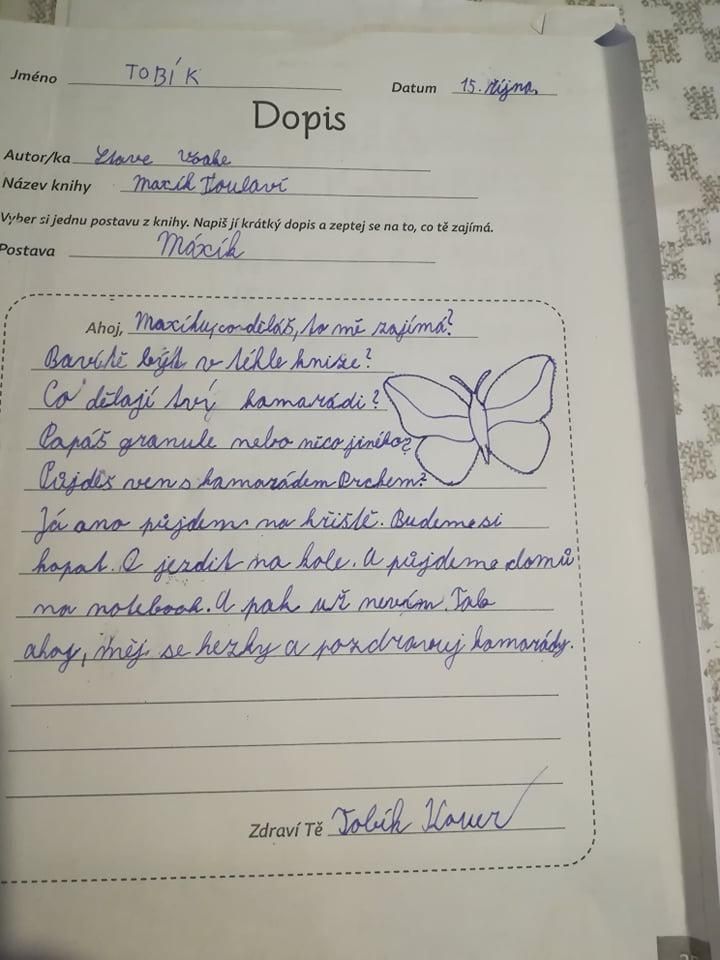 Jméno TOBÍK Datum 15. října.
Dopis
Autor/ka
Název knihy Maxík Toulaví
Vyber si jednu postavu z knihy. Napiš jí krátký dopis a zeptej se na to, co tě zajímá.
Postava Máxík
Ahoj, Maxíku, co děláš, to mě zajímá?
Baví tě být v téhle knize?
Co dělají tví kamarádi?
Papáš granule nebo něco jiného?
Půjdeš ven s kamarádem
Já ano půjdem na hřiště. Budeme si
kopat. A jezdit na kole. A půjdeme domů
na notebook. A pak už nevím. Tak
ahoj, měj se hezky a pozdravuj kamarády.
Zdraví Tě Tobík